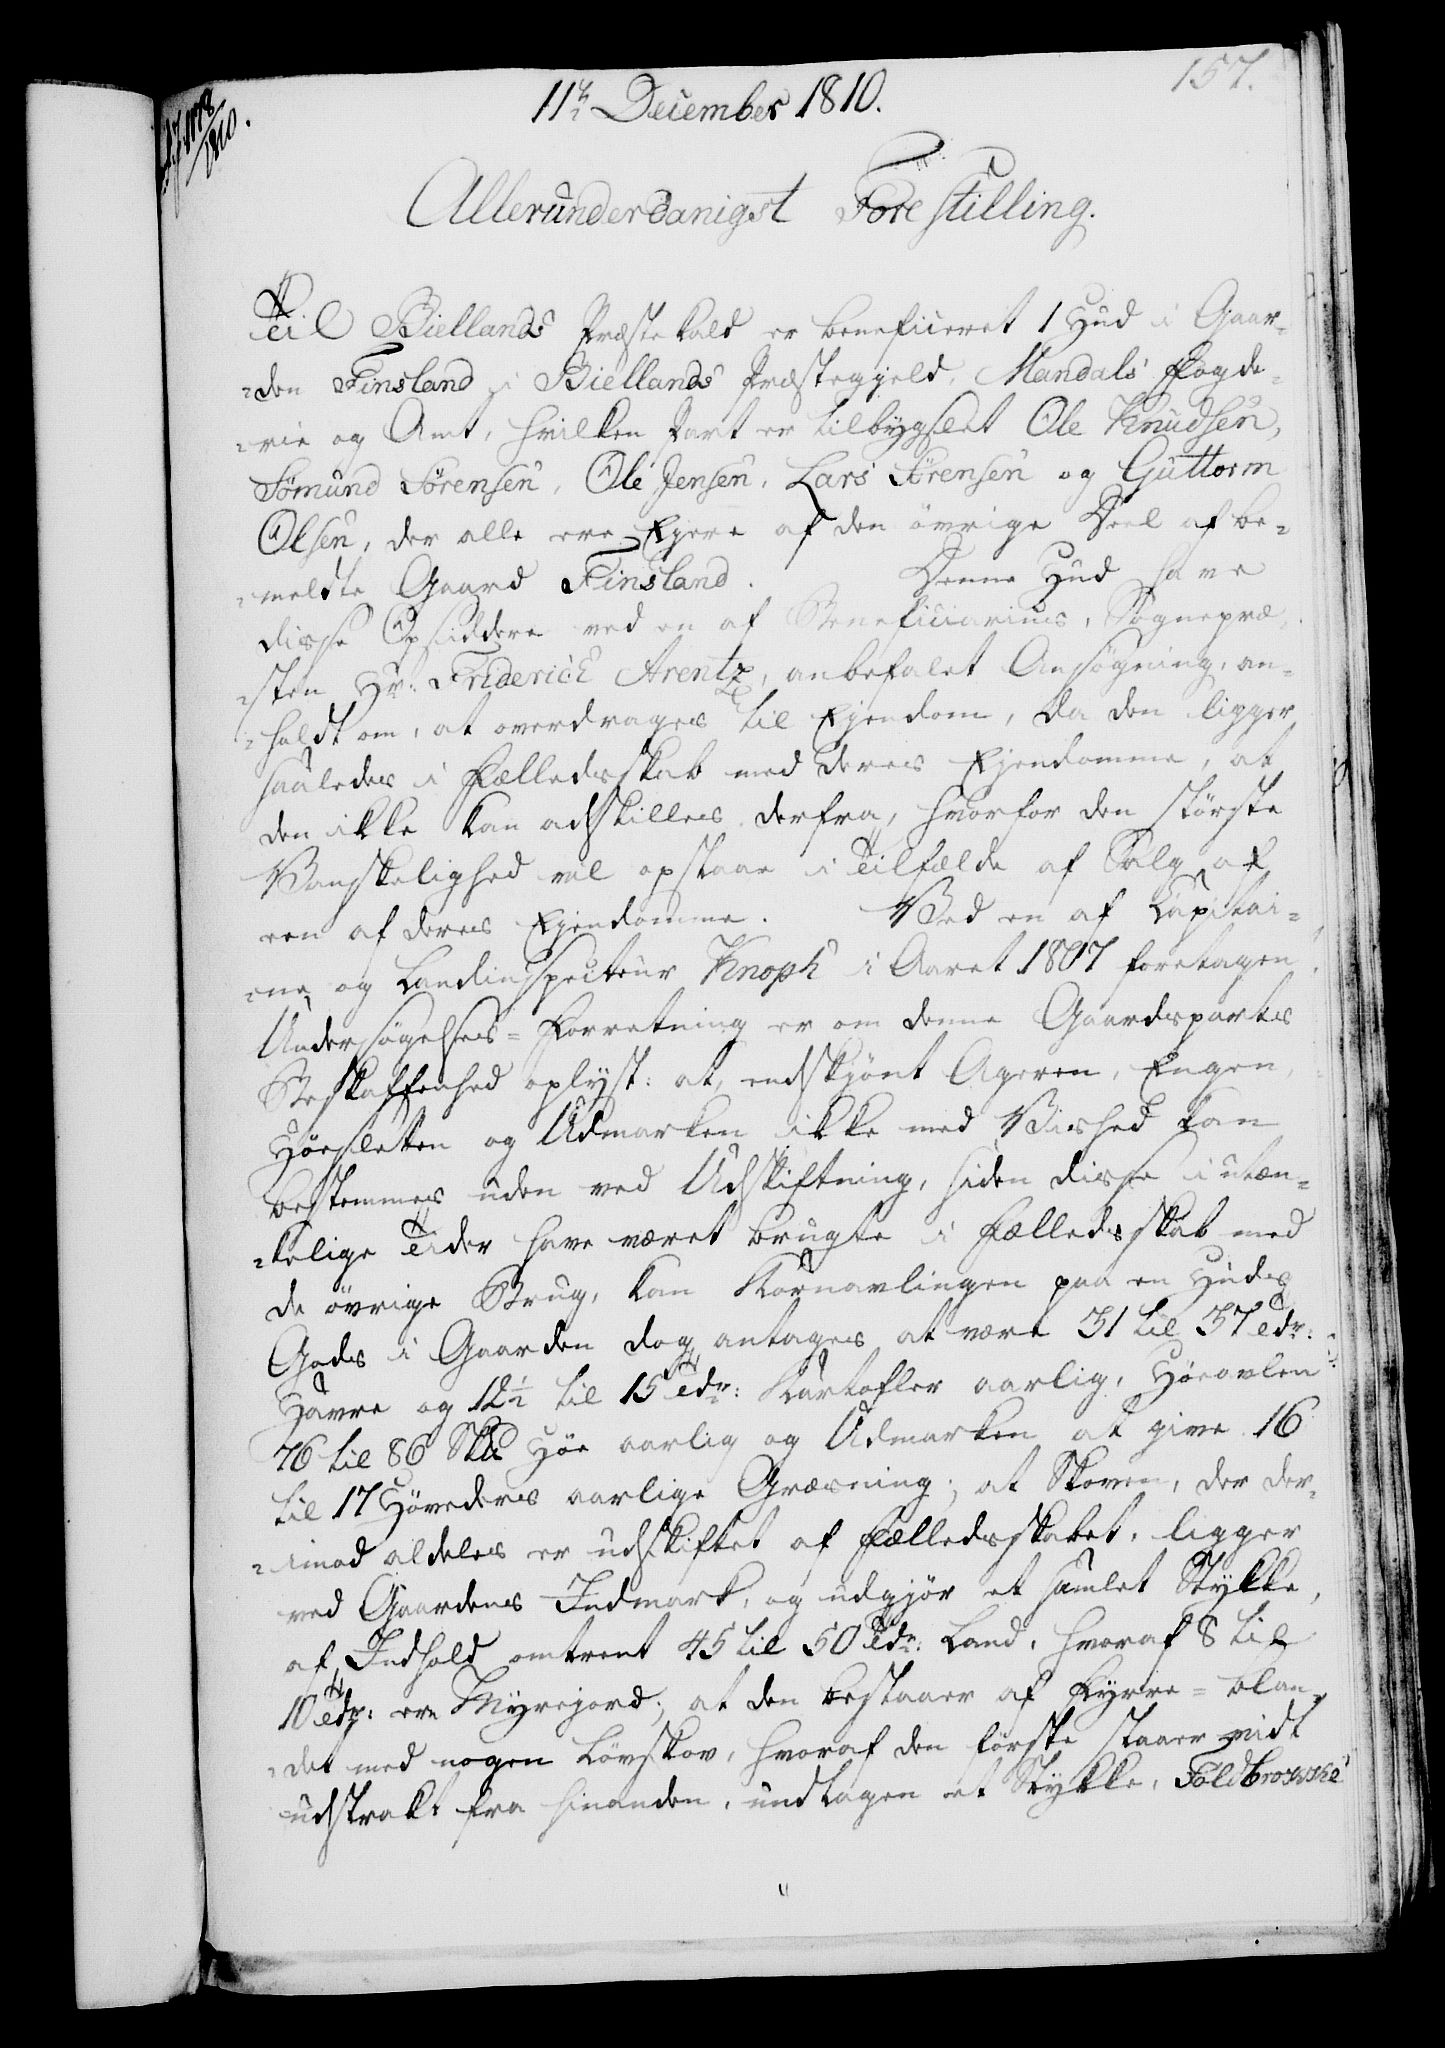 157.
11te December 1810.
Allerunderdanigst Forestilling.
Til Biellands Præstekald er beneficeret 1 Hud i Gaar-
-den Finsland i Biellands Præstegjeld, Mandals Fogde-
-rie og Amt, hvilken Part er tilbygslet Ole Knudsen,
Sömund Sörensen, Ole Jensen, Lars Sörensen og Guttorm
Olsen, der alle ere Ejere af den övrige Deel af be-
-meldte Gaard Finsland. Denne Hud have
disse Opsiddere ved en af Beneficiarius, Sognepræ-
-sten Hr: Friderich Arentz, anbefalet Ansögning, an-
-holdt om, at overdrages til Ejendom, da den ligger
saaledes i Fælledsskab med deres Ejendomme, at
den ikke kan adskilles derfra, hvorfor den störste
Vanskelighed vil opstaae i Tilfælde af Salg af
een af deres Ejendomme. Ved en af Capitai-
-ne og Landinspecteur Knoph i Aaret 1807 foretagen
Undersögelses-Forretning er om denne Gaardsparts
Beskaffenhed oplyst: at, endskjönt Ageren, Engen,
Höesletten og Udmarken ikke med Vished kan
bestemmes uden ved Udskiftning, siden disse i utæn-
-kelige Tider have været brugte i Fælledsskab med
de övrige Brug, kan Kornavlingen paa en Huds
Gods i Gaarden dog antages at være 31 til 37 Tdr:
Havre og 12½ til 15 Tdr: Kartofler aarlig, Höeavlen
76 til 86 Skd Höe aarlig og Udmarken at give 16
til 17 Höveders aarlige Græsning; at Skoven, der der-
-imod aldeles er udskiftet af Fælledsskabet, ligger
ved Gaardens Indmark, og udgjör et samlet Stykke,
af Indhold omtrent 45 til 50 Tdr: Land, hvoraf 8 til
10 Tdr: ere Myrejord; at den bestaaer af Fyrre- blan-
-det med nogen Lövskov, hvoraf den förste staaer vidt
udstrakt fra hinanden, undtagen et Stykke,